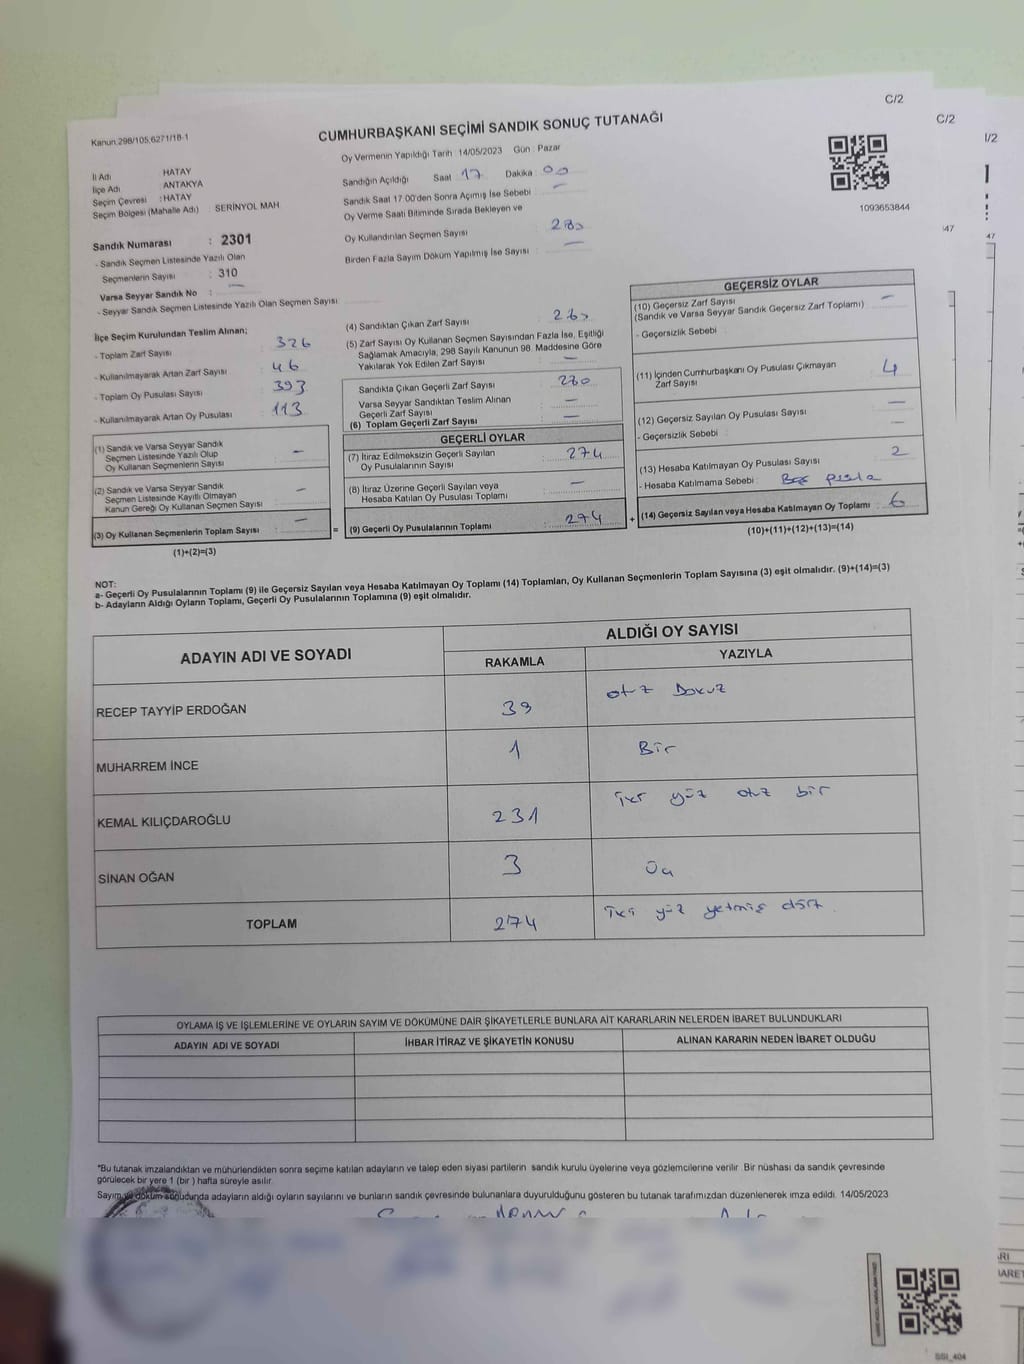 C/2
C/2
1/2
Kanun:298/105;6271/18-1
CUMHURBAŞKANI SEÇİMİ SANDIK SONUÇ TUTANAĞI
Oy Vermenin Yapıldığı Tarih :14/05/2023 Gün : Pazar
İl Adı : HATAY
İlçe Adı : ANTAKYA
Seçim Çevresi : HATAY
Seçim Bölgesi (Mahalle Adı) : SERİNYOL MAH
Sandığın Açıldığı Saat : 17 Dakika : 00
Sandık Saat 17:00'den Sonra Açımış İse Sebebi : —
Oy Verme Saati Bitiminde Sırada Bekleyen ve
Oy Kullandırılan Seçmen Sayısı : 280
Birden Fazla Sayım Döküm Yapılmış İse Sayısı : —
1093653844
47
47
Sandık Numarası : 2301
- Sandık Seçmen Listesinde Yazılı Olan
Seçmenlerin Sayısı : 310
Varsa Seyyar Sandık No : —
- Seyyar Sandık Seçmen Listesinde Yazılı Olan Seçmen Sayısı :
İlçe Seçim Kurulundan Teslim Alınan;
- Toplam Zarf Sayısı : 326
- Kullanılmayarak Artan Zarf Sayısı : 46
- Toplam Oy Pusulası Sayısı : 393
- Kullanılmayarak Artan Oy Pusulası : 113
(1) Sandık ve Varsa Seyyar Sandık
Seçmen Listesinde Yazılı Olup
Oy Kullanan Seçmenlerin Sayısı : —
(2) Sandık ve Varsa Seyyar Sandık
Seçmen Listesinde Kayıtlı Olmayan
Kanun Gereği Oy Kullanan Seçmen Sayısı : —
(3) Oy Kullanan Seçmenlerin Toplam Sayısı : —
(1)+(2)=(3)
(4) Sandıktan Çıkan Zarf Sayısı
(5) Zarf Sayısı Oy Kullanan Seçmen Sayısından Fazla İse, Eşitliği
Sağlamak Amacıyla, 298 Sayılı Kanunun 98. Maddesine Göre
Yakılarak Yok Edilen Zarf Sayısı : —
Sandıkta Çıkan Geçerli Zarf Sayısı : 280
Varsa Seyyar Sandıktan Teslim Alınan
Geçerli Zarf Sayısı : —
(6) Toplam Geçerli Zarf Sayısı : —
GEÇERLİ OYLAR
(7) İtiraz Edilmeksizin Geçerli Sayılan
Oy Pusulalarının Sayısı : 274
(8) İtiraz Üzerine Geçerli Sayılan veya
Hesaba Katılan Oy Pusulası Toplamı : —
= (9) Geçerli Oy Pusulalarının Toplamı : 274
GEÇERSİZ OYLAR
(10) Geçersiz Zarf Sayısı : —
(Sandık ve Varsa Seyyar Sandık Geçersiz Zarf Toplamı)
- Geçersizlik Sebebi :
(11) İçinden Cumhurbaşkanı Oy Pusulası Çıkmayan
Zarf Sayısı : 4
(12) Geçersiz Sayılan Oy Pusulası Sayısı : —
- Geçersizlik Sebebi : —
(13) Hesaba Katılmayan Oy Pusulası Sayısı : 2
- Hesaba Katılmama Sebebi :
+ (14) Geçersiz Sayılan veya Hesaba Katılmayan Oy Toplamı : 6
(10)+(11)+(12)+(13)=(14)
NOT:
a- Geçerli Oy Pusulalarının Toplamı (9) ile Geçersiz Sayılan veya Hesaba Katılmayan Oy Toplamı (14) Toplamları, Oy Kullanan Seçmenlerin Toplam Sayısına (3) eşit olmalıdır. (9)+(14)=(3)
b- Adayların Aldığı Oyların Toplamı, Geçerli Oy Pusulalarının Toplamına (9) eşit olmalıdır.
ADAYIN ADI VE SOYADI
ALDIĞI OY SAYISI
RAKAMLA YAZIYLA
RECEP TAYYİP ERDOĞAN 39 otuz Dokuz
MUHARREM İNCE 1 Bir
KEMAL KILIÇDAROĞLU 231 iki yüz otuz bir
SİNAN OĞAN 3 Üç
TOPLAM 274 iki yüz yetmiş dört
OYLAMA İŞ VE İŞLEMLERİNE VE OYLARIN SAYIM VE DÖKÜMÜNE DAİR ŞİKAYETLERLE BUNLARA AİT KARARLARIN NELERDEN İBARET BULUNDUKLARI
ADAYIN ADI VE SOYADI İHBAR İTİRAZ VE ŞİKAYETİN KONUSU ALINAN KARARIN NEDEN İBARET OLDUĞU
*Bu tutanak imzalandıktan ve mühürlendikten sonra seçime katılan adayların ve talep eden siyasi partilerin sandık kurulu üyelerine veya gözlemcilerine verilir. Bir nüshası da sandık çevresinde
görülecek bir yere 1 (bir ) hafta süreyle asılır.
Sayım ve döküm sonucunda adayların aldığı oyların sayılarını ve bunların sandık çevresinde bulunanlara duyurulduğunu gösteren bu tutanak tarafımızdan düzenlenerek imza edildi. 14/05/2023
SSI_404